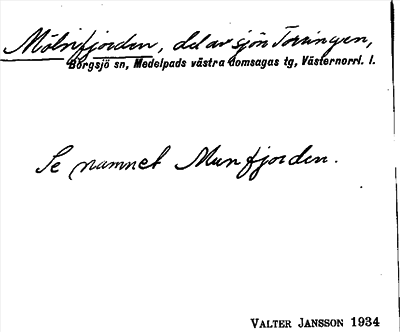 Mölnfjorden, del av sjön Torringen,
Borgsjö sn, Medelpads västra domsagas tg, Västernorrl. l.
Se namnet Munfjorden.
VALTER JANSSON 1934